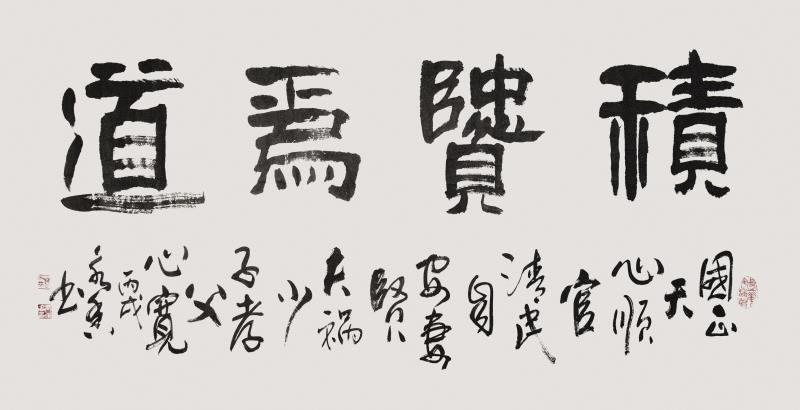 積贒焉道
國正天心順官清民自安妻賢夫禍少子孝父心寬丙戌永書